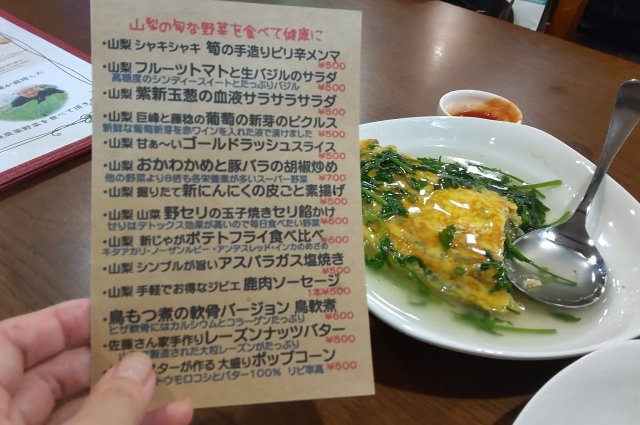 山梨の旬な野菜を食べて健康に
・山梨 シャキシャキ 筍の手造りピリ辛メンマ
¥500
・山梨 フルーツトマトと生バジルのサラダ
高糖度のシンディースイートとたっぷりバジル ¥500
・山梨 紫新玉葱の血液サラサラサラダ
¥500
・山梨 巨峰と藤稔の葡萄の新芽のピクルス
新鮮な葡萄新芽を赤ワインを入れた液で漬けました ¥500
・山梨 甘ぁ〜いゴールドラッシュスライス
¥500
・山梨 おかわかめと豚バラの胡椒炒め
他の野菜より8倍も各栄養素が多いスーパー野菜 ¥700
・山梨 掘りたて 新にんにくの皮ごと素揚げ
¥500
・山梨 山菜 野セリの玉子焼きセリ餡かけ
せりはデトックス効果が高いので毎日食べたい野菜 ¥600
・山梨 新じゃがポテトフライ食べ比べ
キタアカリ・ノーザンルビー・アンデスレッド・インカのめざめ ¥600
・山梨 シンプルが旨いアスパラガス塩焼き
¥500
・山梨 手軽でお得なジビエ 鹿肉ソーセージ
1本¥500
・鳥もつ煮の軟骨バージョン 鳥軟煮
ヒザ軟骨にはカルシウムとコラーゲンたっぷり ¥600
・佐藤さん家手作りレーズンナッツバター
製造された大粒レーズンがたっぷり ¥500
ターが作る 大盛りポップコーン
トウモロコシとバター100% リピ率高 ¥500